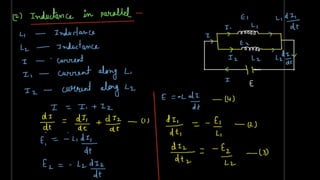 (2) Inductance in parallel -
L₁ — Inductance
L₂ — Inductance
I — current
I₁ — current along L₁
I₂ — current along L₂
I = I₁ + I₂
dI/dt = dI₁/dt + dI₂/dt — (1)
E₁ = -L₁ dI₁/dt
E₂ = -L₂ dI₂/dt
E₁
L₁
L₁ dI₁/dt
I₁
I₁
I₂
E₂
L₂
I
I
E
E = -L dI/dt — (4)
dI₁/dt₁ = -E₁/L₁ — (2)
dI₂/dt₂ = -E₂/L₂ — (3)